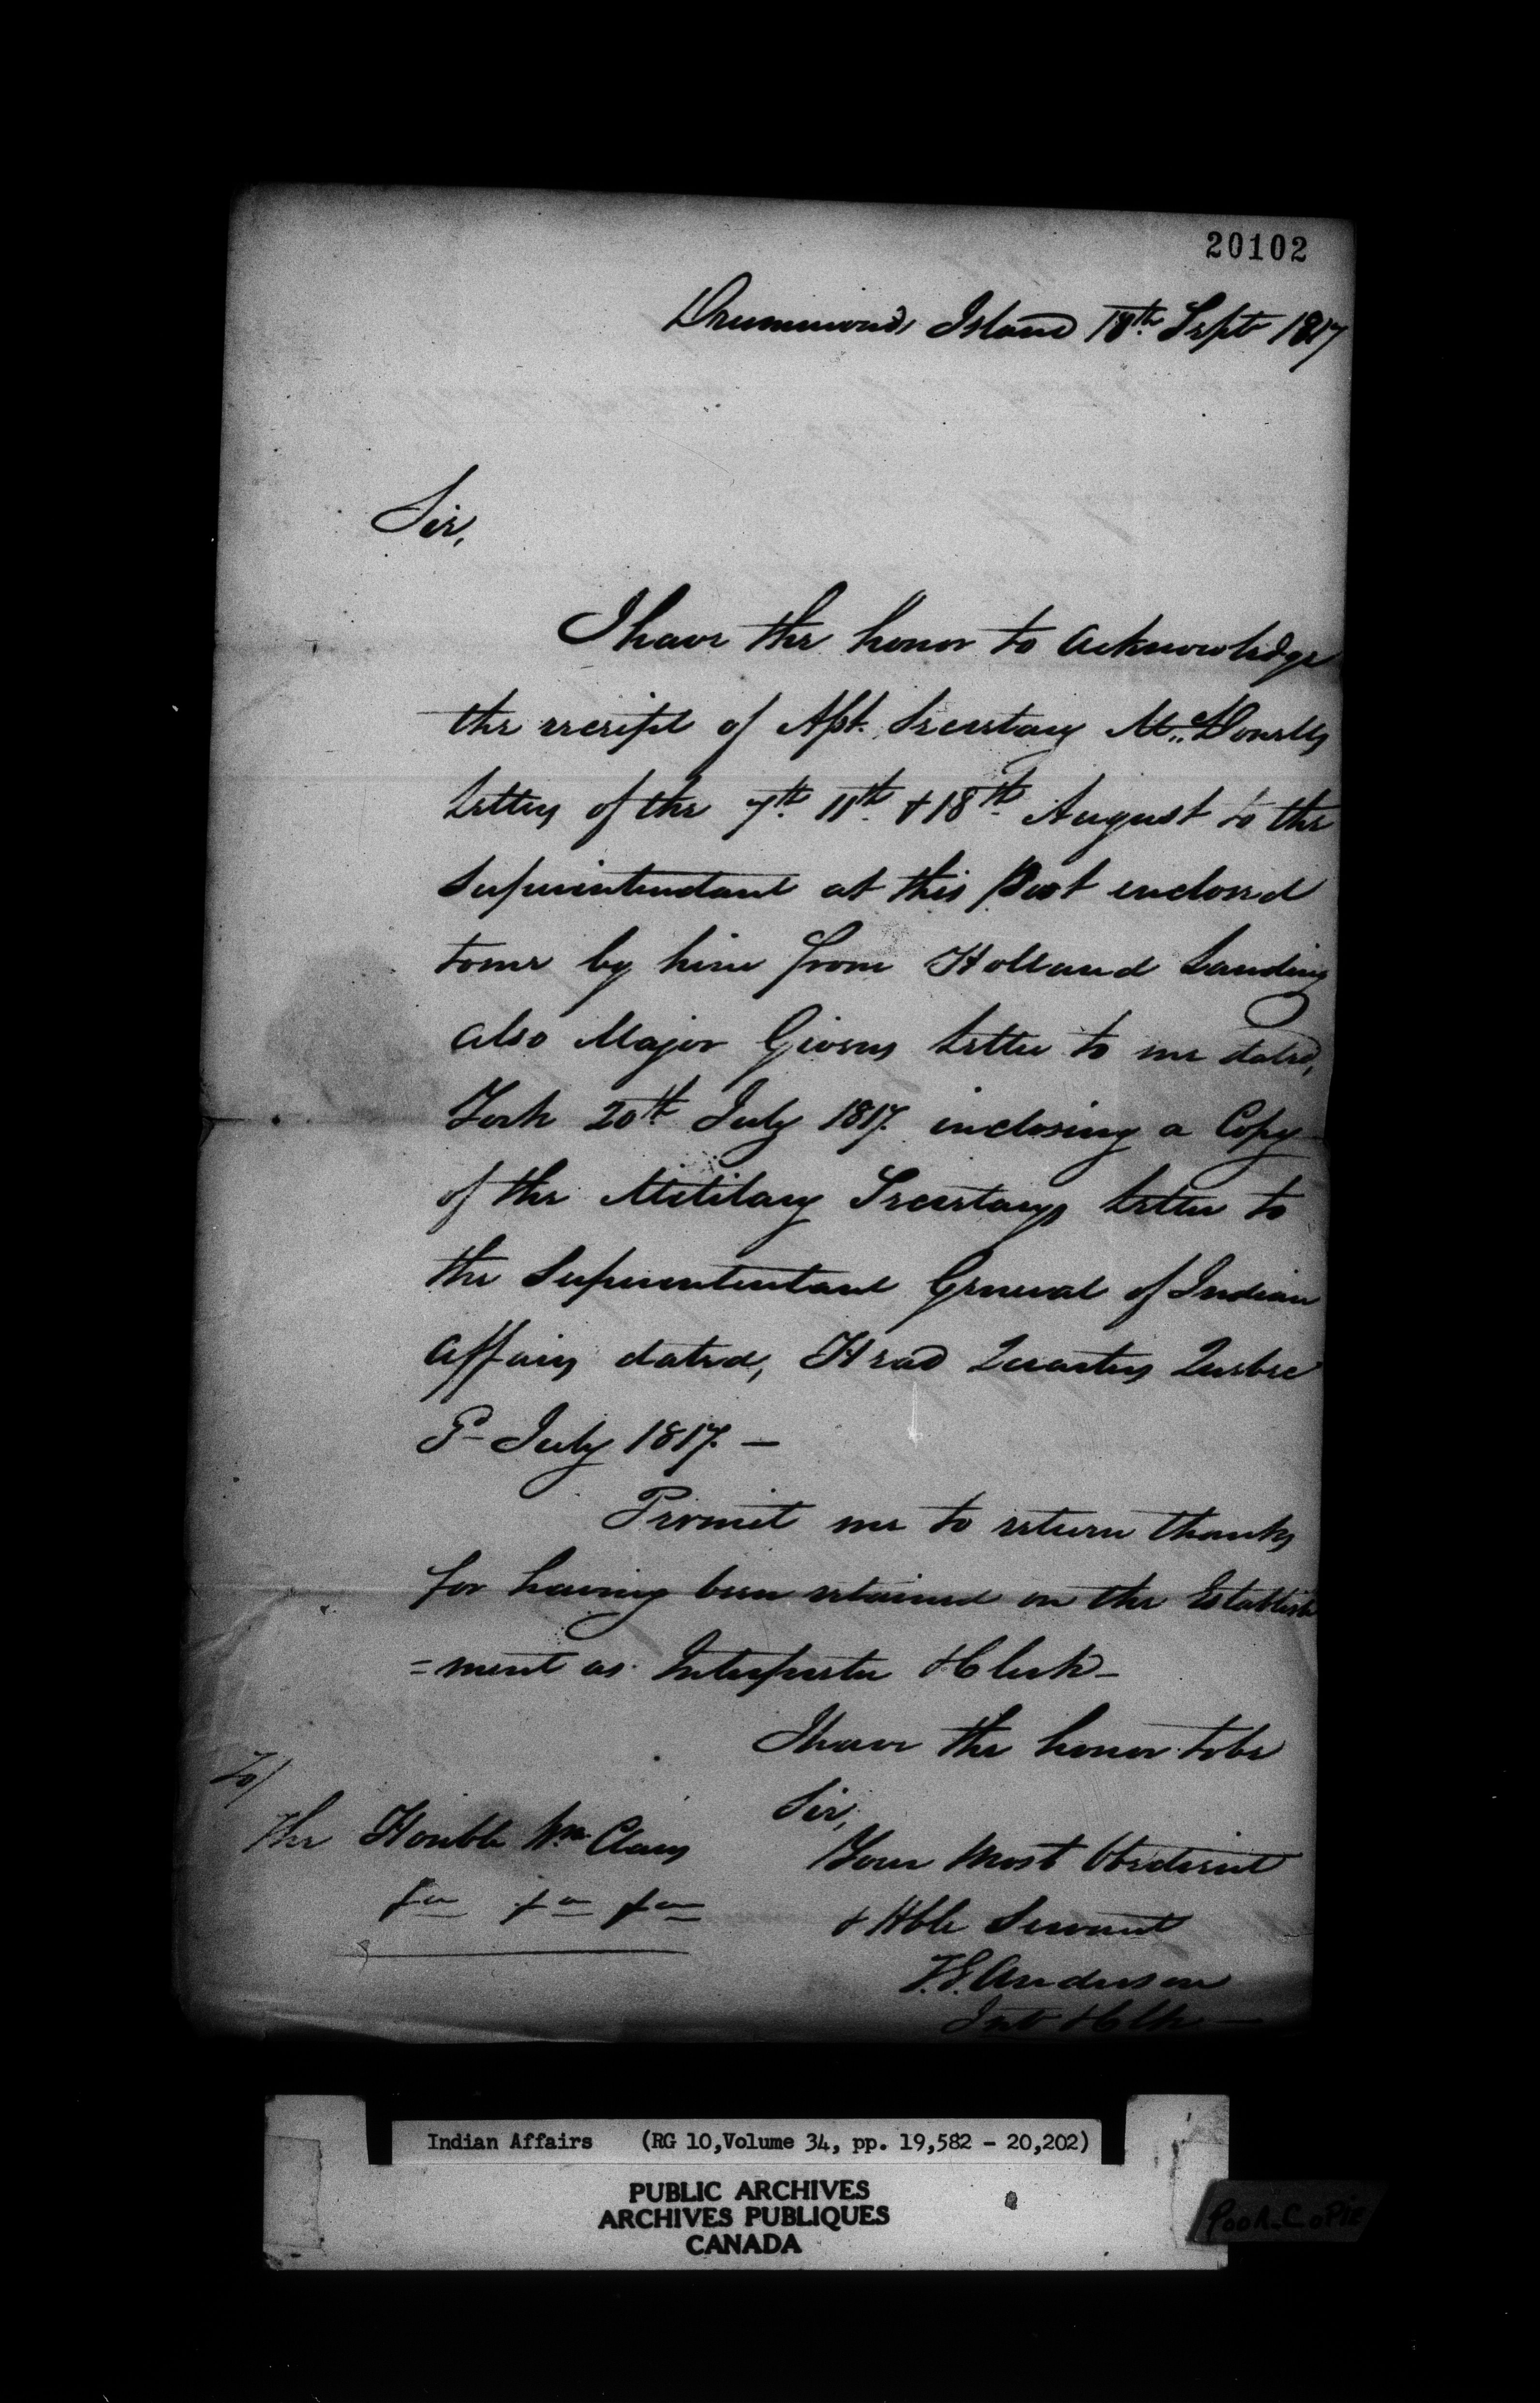 20102
Drummond Island 18th Sept 1817
Sir,
I have the honor to acknowledge
the receipt of Asst. Secretary McDonells
Letters of the 7th 11th & 18th August to the
Superintendant at this Post enclosed
to me by him from Holland Landing
also Major Givens Letter to me dated,
York 20th July 1817. inclosing a Copy
of the Military Secretarys Letter to
the Superintendant General of Indian
Affairs dated, Head Quarters Quebec
July 1817. —
Permit me to return thanks
for having been retained on the Establish
=ment as Interpreter & Clerk —
I have the honor to be
Sir,
Your Most Obedient
& Hble Servant
T.G. Anderson
Int & Clk —
To/
The Honble Wm. Claus
Indian Affairs (RG 10, Volume 34, pp. 19,582 - 20,202)
PUBLIC ARCHIVES
ARCHIVES PUBLIQUES
CANADA
POOR COPIE